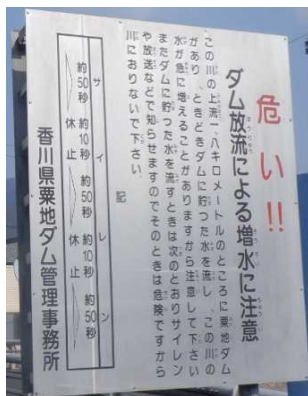 危い!!
ダム放流による増水に注意
この川の上流一、八キロメートルのところに粟地ダム
があり、ときどきダムに貯つた水を流し、この川の
水が急に増えることがありますから注意して下さい
またダムに貯つた水を流すときは次のとおりサイレン
や放送などで知らせますのでそのときは危険ですから
川におりないで下さい。
記
サイレン
約50秒
休止
約10秒
約50秒
休止
約10秒
約50秒
香川県粟地ダム管理事務所